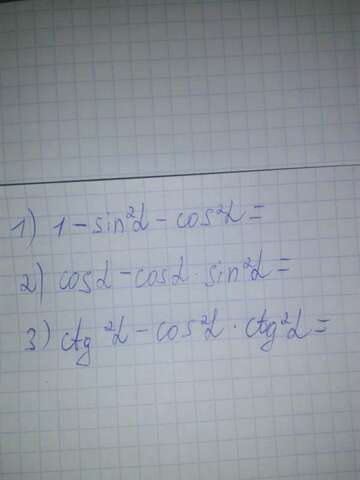 1) 1 - sin²α - cos²α =
2) cosα - cosα · sin²α =
3) ctg²α - cos²α · ctg²α =